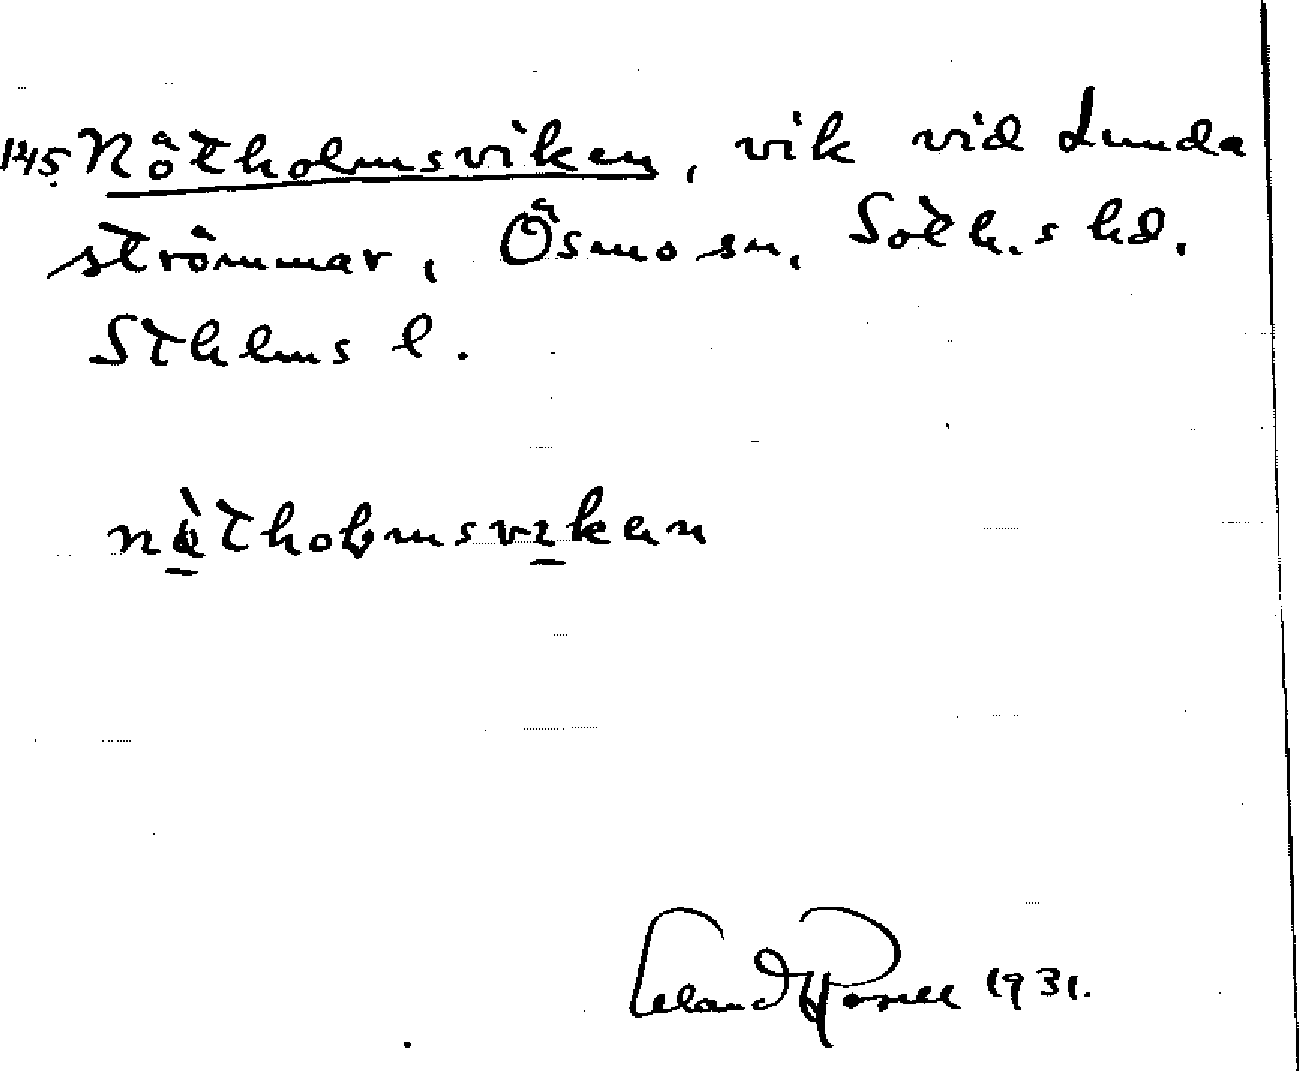 145. Nötholmsviken, vik vid Lunda
strömmar, Ösmo sn, Soth.s hd.
Sthlms l.
nɵ̀tholmsvıken
1931.